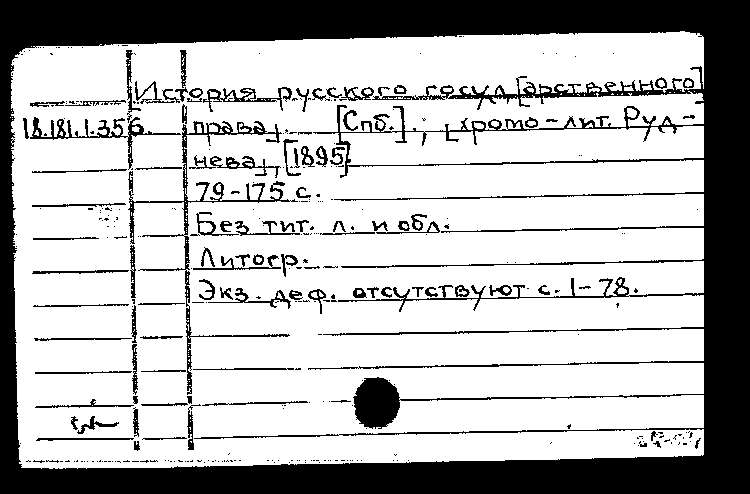 История русского госуд[арственного]
18.181.1.356. права]. [Спб.].; [хромо-лит. Руд-
нева], [1895].
79-175 с.
Без тит. л. и обл.
Литогр.
Экз. деф. отсутствуют с. 1-78.